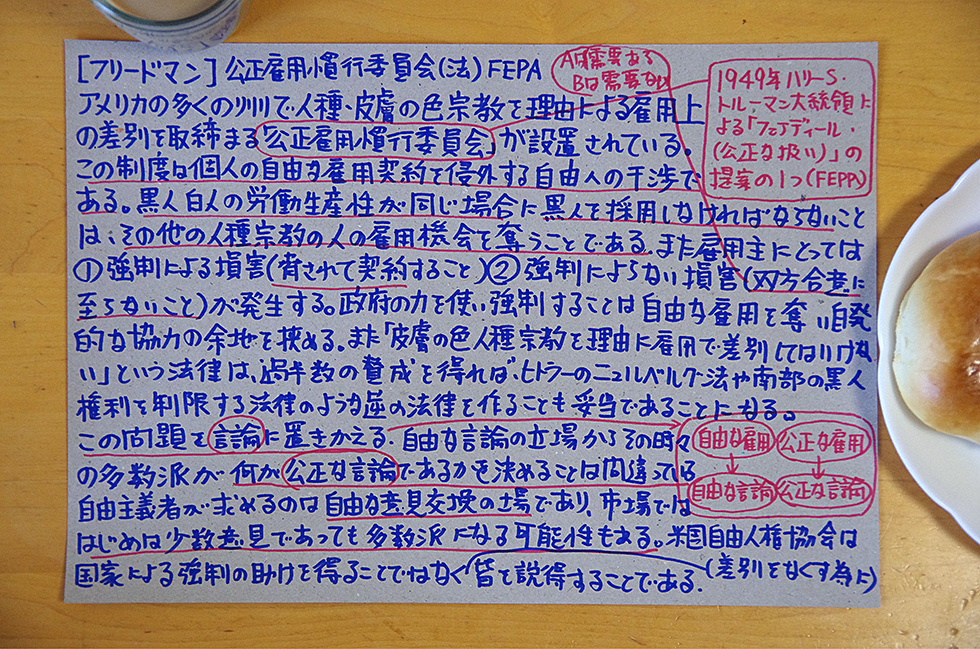 [フリードマン]公正雇用慣行委員会(法)FEPA
Aは需要ある
Bは需要ない
1949年ハリーS・
トルーマン大統領に
よる「フェアディール・
(公正な扱い)」の
提案の1つ(FEPA)
アメリカの多くの州で人種、皮膚の色宗教を理由による雇用上
の差別を取締まる「公正雇用慣行委員会」が設置されている。
この制度は個人の自由な雇用契約を侵外する自由への干渉で
ある。黒人白人の労働生産性が同じ場合に黒人を採用しなければならないこと
は、その他の人種宗教の人の雇用機会を奪うことである。また雇用主にとっては
①強制による損害(脅されて契約すること)②強制によらない損害(双方合意に
至らないこと)が発生する。政府の力を使い強制することは自由な雇用を奪い自発
的な協力の余地を挟める。また「皮膚の色人種宗教を理由に雇用で差別してはいけな
い」という法律は、過半数の賛成を得れば、ヒトラーのニュルベルク法や南部の黒人
権利を制限する法律のような逆の法律を作ることも妥当であることになる。
この問題を言論に置きかえる。自由な言論の立場からその時々
の多数派が何が公正な言論であるかを決めることは間違っている
自由主義者が求めるのは自由な意見交換の場であり、市場では
はじめは少数意見であっても多数派になる可能性もある。米国自由人権協会は
国家による強制の助けを得ることではなく皆を説得することである。(差別をなくす為に)
自由な雇用 公正な雇用
自由な言論 公正な言論